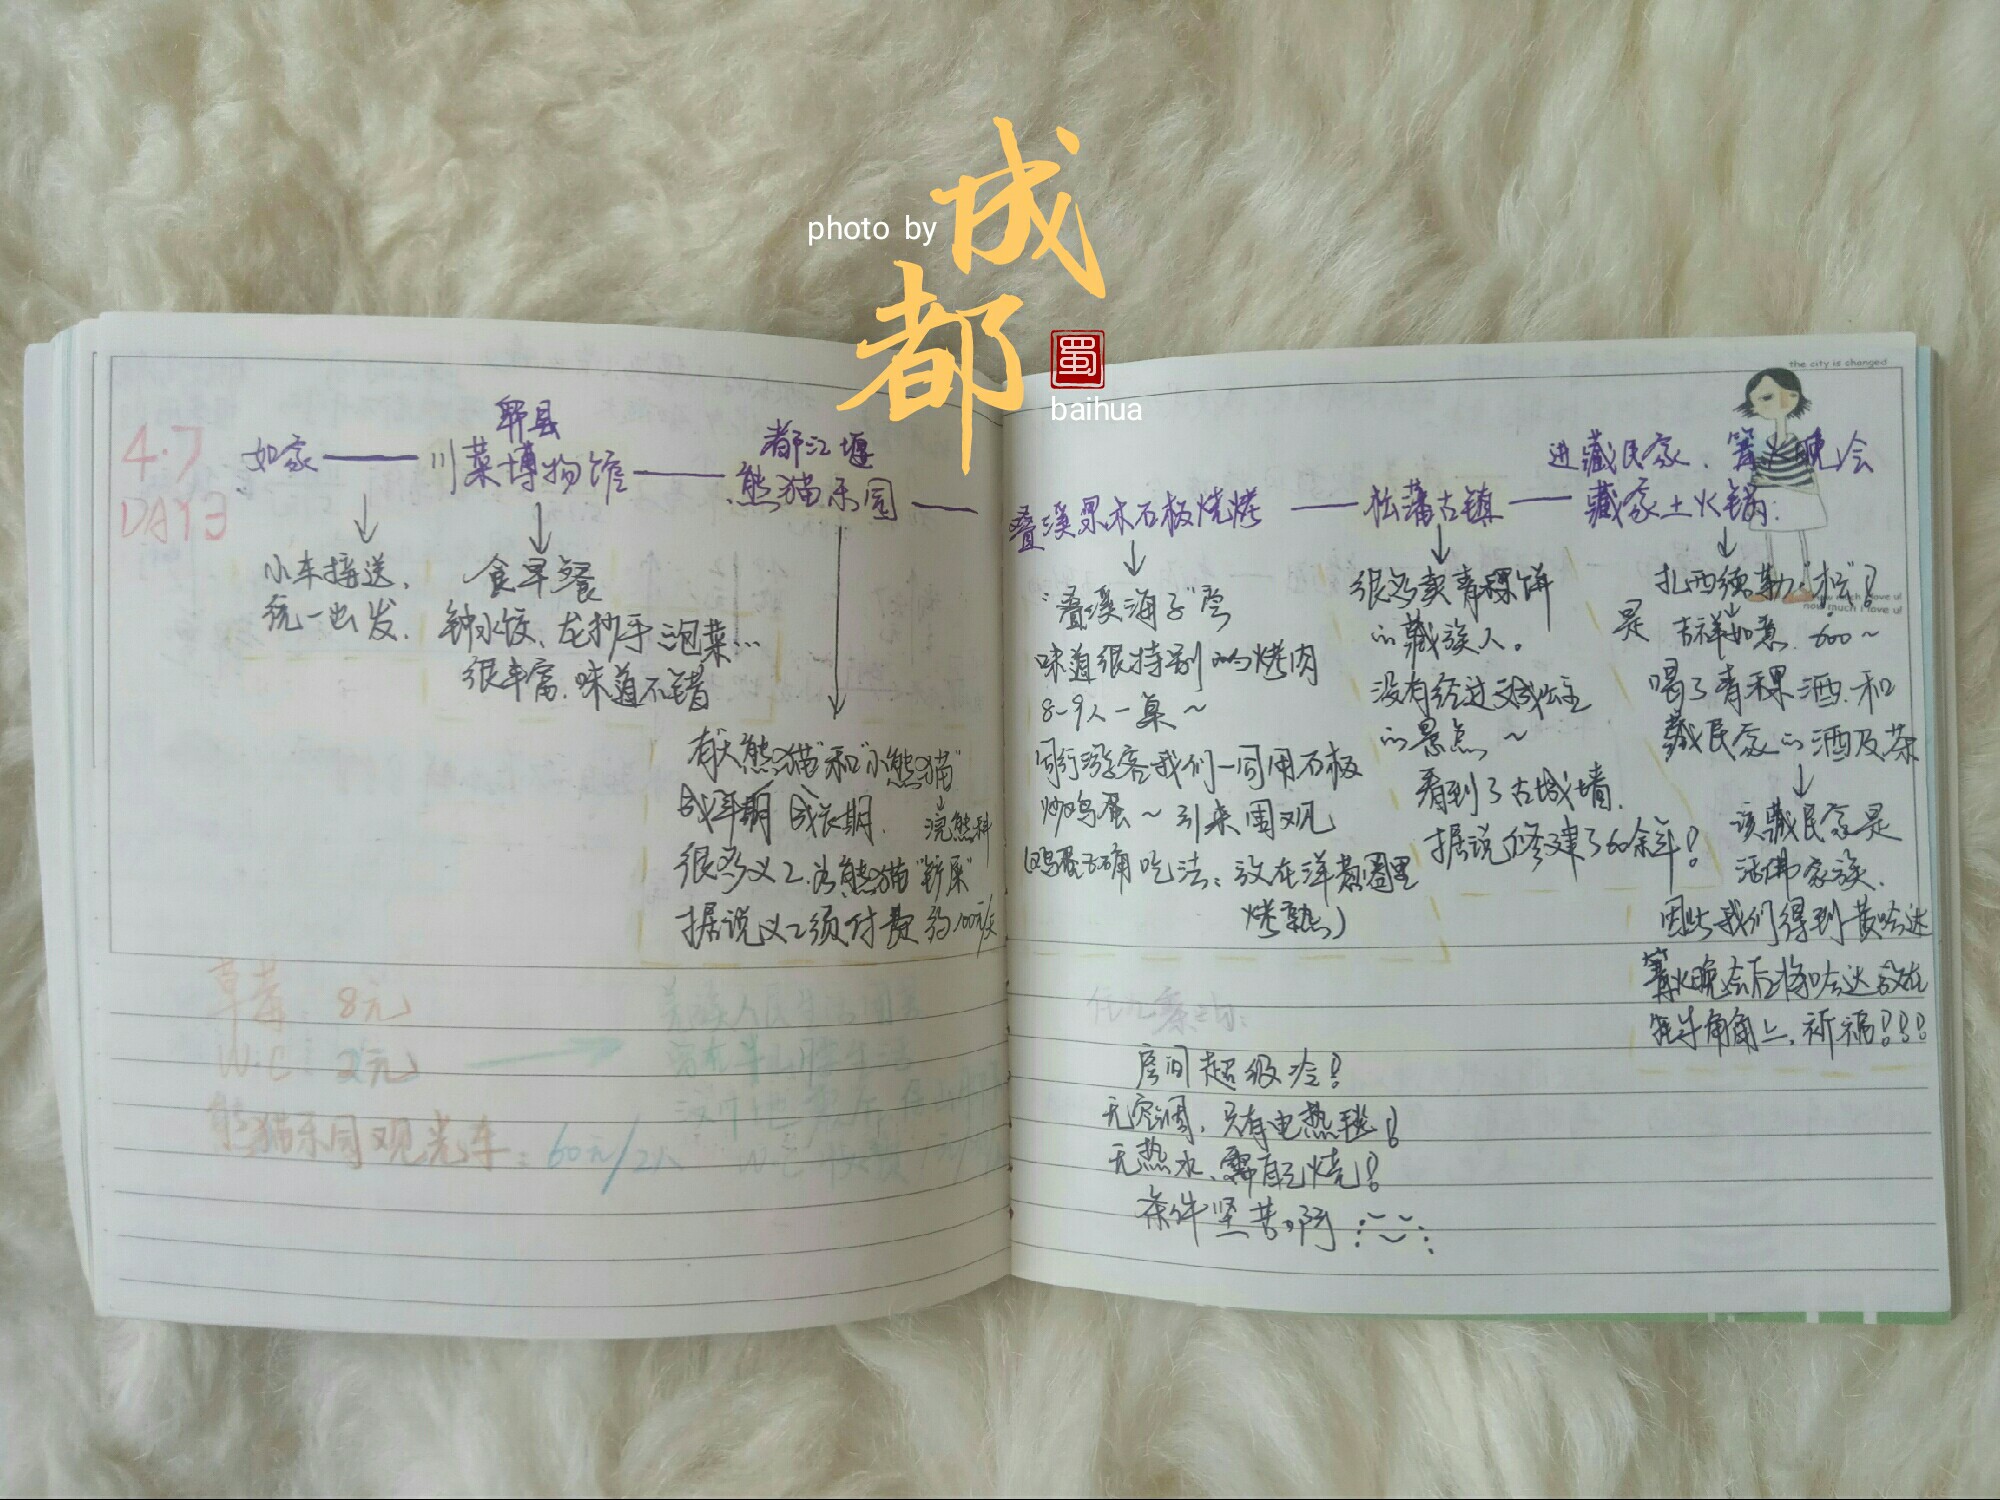 成都
photo by
蜀
baihua
the city is changed
4.7
DAY3
如家
郫县
川菜博物馆
都江堰
熊猫乐园
小车接送,
统一出发.
食早餐
钟水饺、龙抄手 泡菜…
很丰富.味道不错
有"大熊猫"和"小熊猫"
成年期 成长期.
浣熊科
很多义工.为熊猫"
据说义工须付费 约100元/天
草莓: 8元
W.C: 2元
熊猫乐园观光车: 60元/2人
羌族人民
叠溪果木石板烧烤
松藩古镇
进藏民家.篝火晚会
藏家土火锅.
"叠溪海子"
味道很特别的烤肉
8~9人一桌~
同行游客我们一同用石板
炒鸡蛋~引来围观
(鸡蛋正确吃法:放在洋葱圈里
烤熟)
很多卖青稞饼
的藏族人。
没有经过文成公主
的景点~
看到了古城墙.
据说修建了60余年!
扎西德勒
now much i love u!
是 吉祥如意.
喝了青稞酒.和
藏民家的酒及茶
该藏民家是
活佛家族.
因此我们得到黄哈达
篝火晚会后将哈达放在
牦牛角角上.祈福!!!
房间超级冷!
无空调,只有电热毯!
无热水、需自己烧!
条件坚苦啊